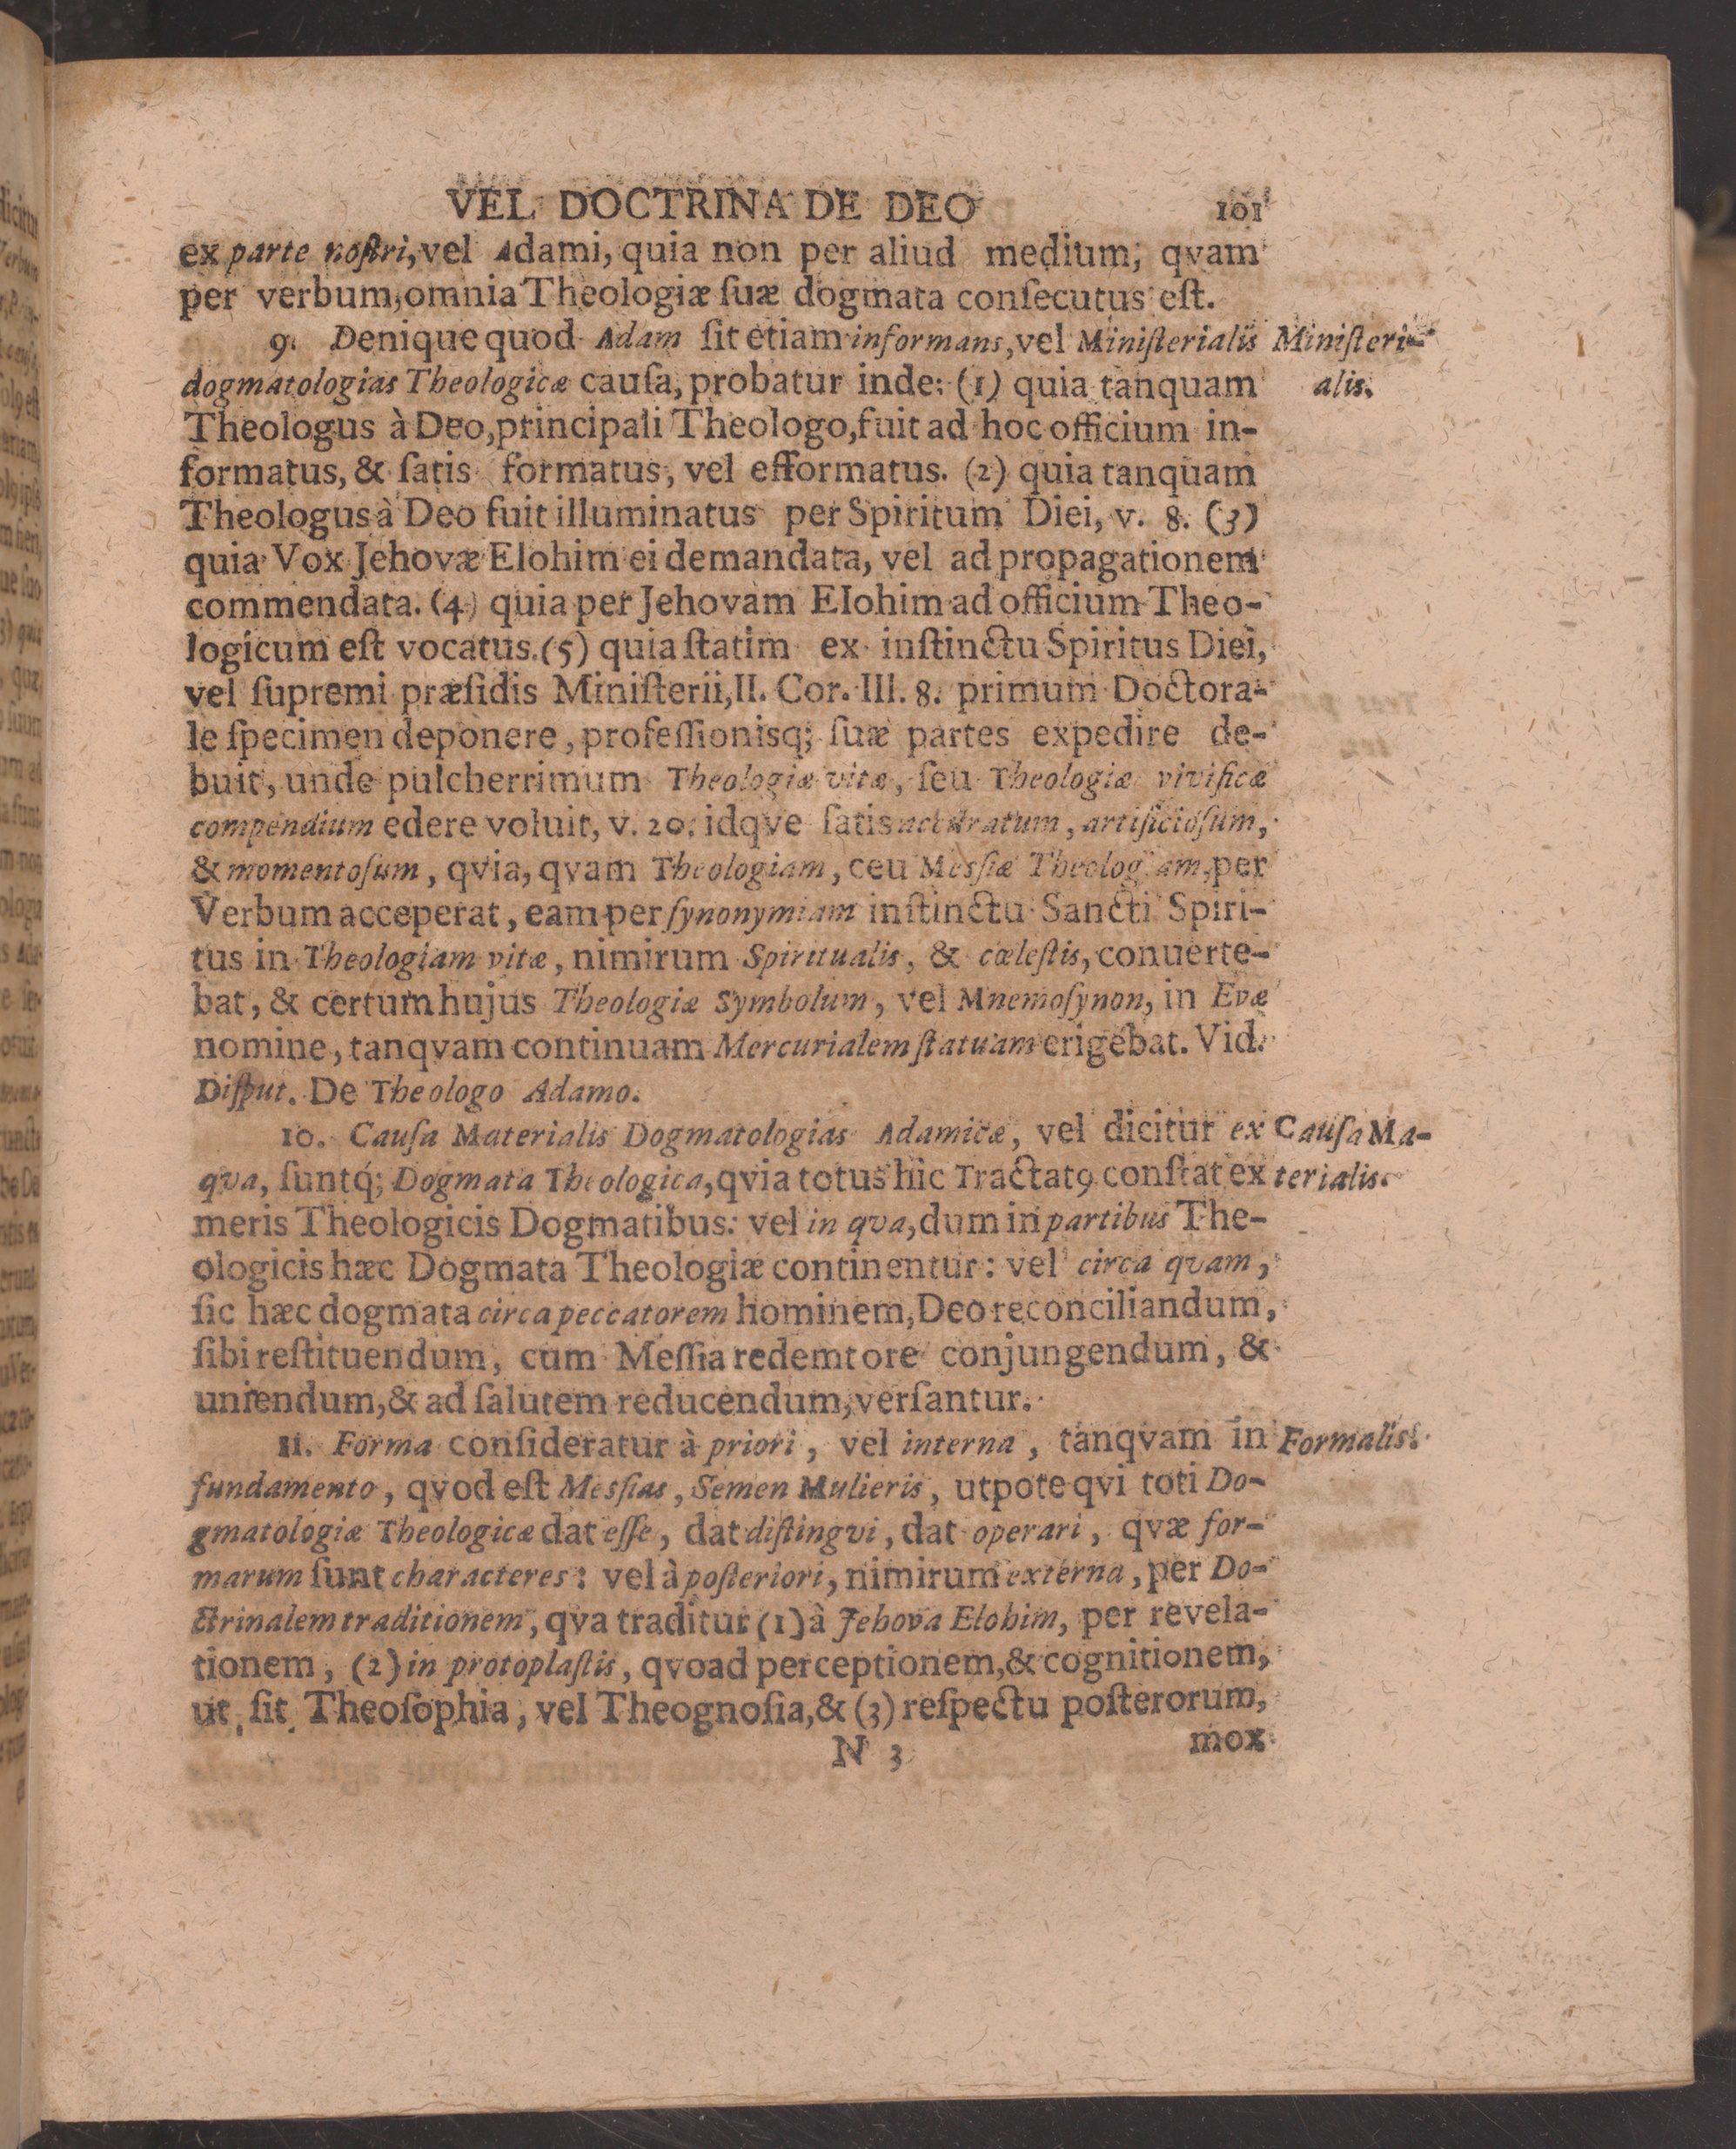 VEL DOCTRINA DE DEO 101
ex parte noſtri, vel Adami, quia non per aliud medium, qvam
per verbum, omnia Theologiæ ſuæ dogmata conſecutus eſt.
9. Denique quod Adam ſit etiam informans, vel Miniſterialis
Miniſteri-
dogmatologias Theologicæ cauſa, probatur inde: (1) quia tanquam
alis.
Theologus à Deo, principali Theologo, fuit ad hoc officium in-
formatus, & ſatis formatus, vel efformatus. (2) quia tanquam
Theologus à Deo fuit illuminatus per Spiritum Diei, v. 8. (3)
quia Vox Jehovæ Elohim ei demandata, vel ad propagationem
commendata. (4) quia per Jehovam Elohim ad officium Theo-
logicum eſt vocatus. (5) quia ſtatim ex inſtinctu Spiritus Diei,
vel ſupremi præſidis Miniſterii, II. Cor. III. 8. primum Doctora-
le ſpecimen deponere, profeſſionisq; ſuæ partes expedire de-
buit, unde pulcherrimum Theologiæ vitæ, ſeu Theologiæ vivificæ
compendium edere voluit, v. 20. idqve ſatis accuratum, artificioſum,
& momentoſum, qvia, qvam Theologiam, ceu Meſſiæ Theologiam, per
Verbum acceperat, eam per ſynonymiam inſtinctu Sancti Spiri-
tus in Theologiam vitæ, nimirum Spiritualis, & cœleſtis, conuerte-
bat, & certum hujus Theologiæ Symbolum, vel Mnemoſynon, in Evæ
nomine, tanqvam continuam Mercurialem ſtatuam erigebat. Vid.
Diſput. De Theologo Adamo.
10. Cauſa Materialis Dogmatologias Adamicæ, vel dicitur ex
Cauſa Ma-
qva, ſuntq́; Dogmata Theologica, qvia totus hic Tractatꝰ conſtat ex
terialis.
meris Theologicis Dogmatibus: vel in qva, dum in partibus The-
ologicis hæc Dogmata Theologiæ continentur: vel circa qvam,
ſic hæc dogmata circa peccatorem hominem, Deo reconciliandum,
ſibi reſtituendum, cum Meſſia redemtore conjungendum, &
uniendum, & ad ſalutem reducendum, verſantur.
11. Forma conſideratur à priori, vel interna, tanqvam in
Formalis.
fundamento, qvod eſt Meſſias, Semen Mulieris, utpote qvi toti Do-
gmatologiæ Theologicæ dat eſſe, dat diſtingvi, dat operari, qvæ for-
marum ſunt characteres: vel à poſteriori, nimirum externa, per Do-
ctrinalem traditionem, qva traditur (1) à Jehova Elohim, per revela-
tionem, (2) in protoplaſtis, qvoad perceptionem, & cognitionem,
ut ſit Theoſophia, vel Theognoſia, & (3) reſpectu poſterorum,
N 3 mox